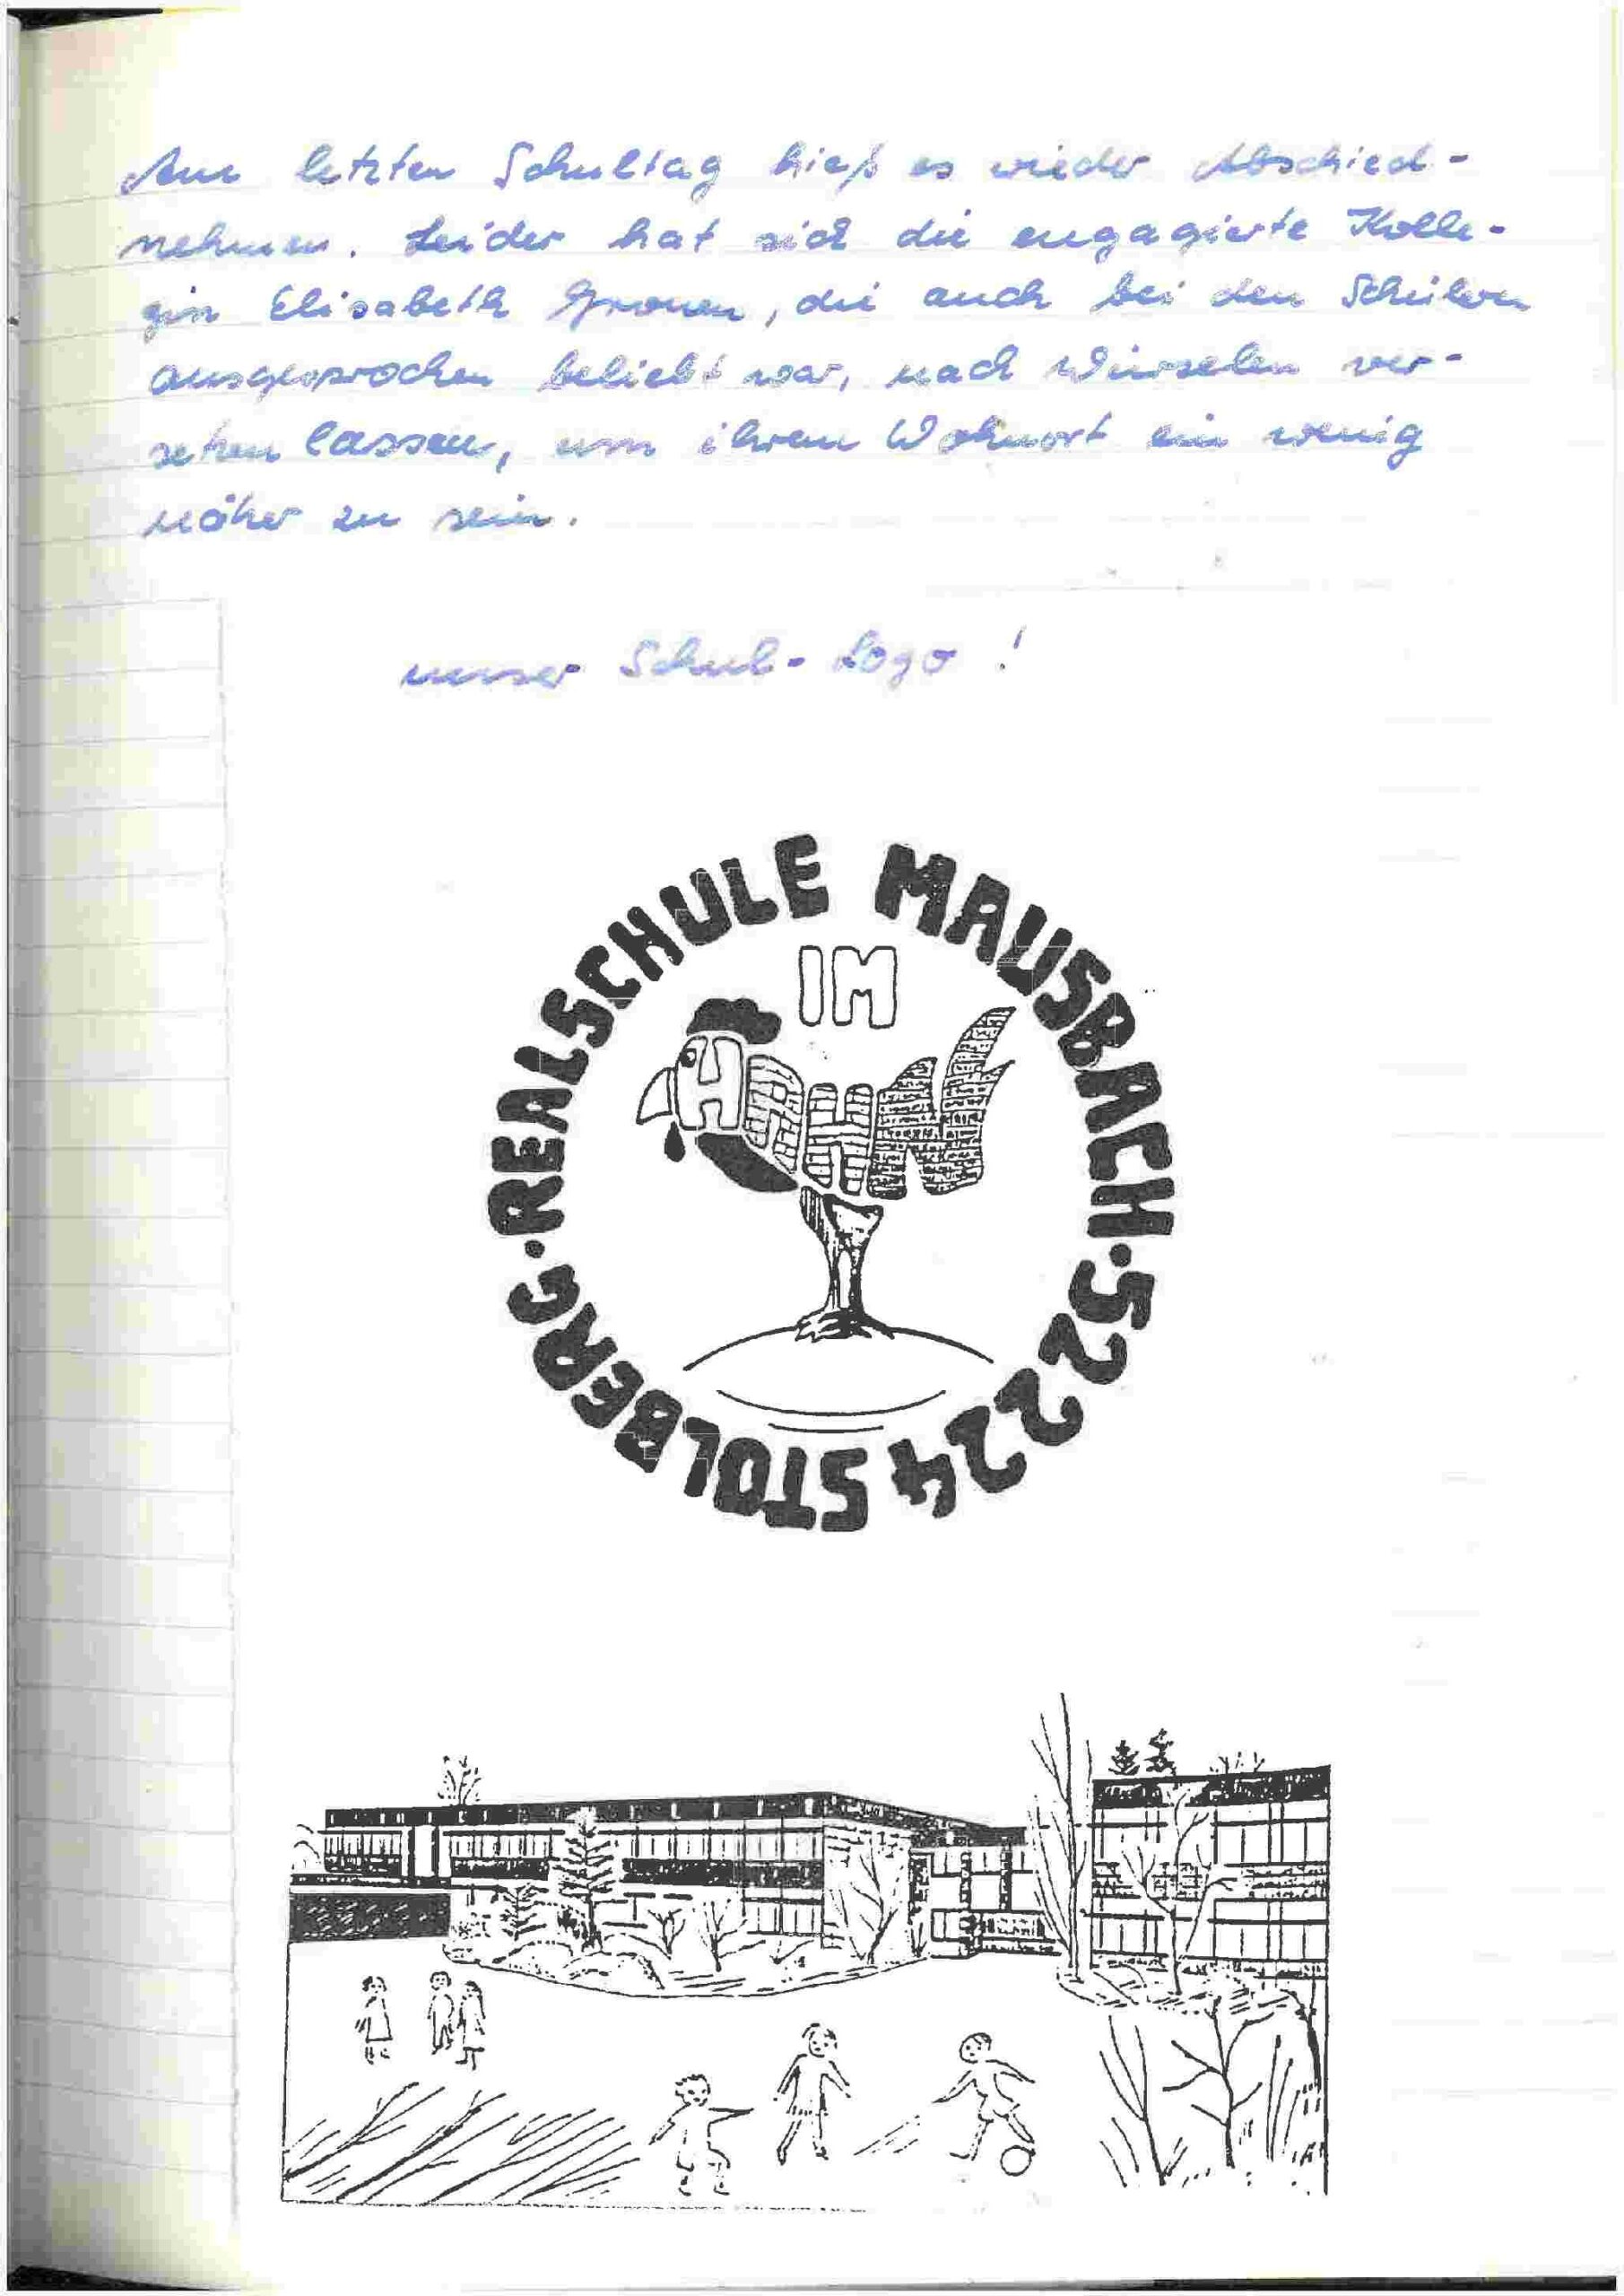 Am letzten Schultag hieß es wieder Abschied-
nehmen. Leider hat sich die engagierte Kolle-
gin Elisabeth Gronen, die auch bei den Schülern
ausgesprochen beliebt war, nach Würselen ver-
setzen lassen, um ihrem Wohnort ein wenig
näher zu sein.
unser Schul-Logo!
REALSCHULE MAUSBACH · 52224 STOLBERG ·
IM
HAHN